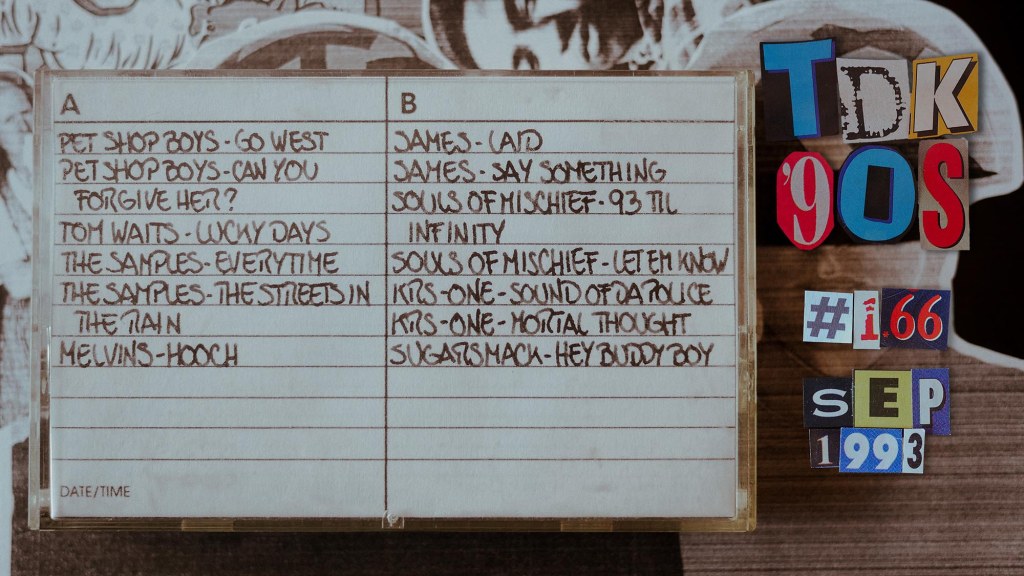 A
PET SHOP BOYS - GO WEST
PET SHOP BOYS - CAN YOU
FORGIVE HER?
TOM WAITS - LUCKY DAYS
THE SAMPLES - EVERYTIME
THE SAMPLES - THE STREETS IN
THE RAIN
MELVINS - HOOCH
DATE/TIME
B
JAMES - LAID
JAMES - SAY SOMETHING
SOULS OF MISCHIEF - 93 TIL
INFINITY
SOULS OF MISCHIEF - LET EM KNOW
KRS-ONE - SOUND OF DA POLICE
KRS-ONE - MORTAL THOUGHT
SUGARSMACK - HEY BUDDY BOY
TDK
'90S
#1.66
SEP
1993